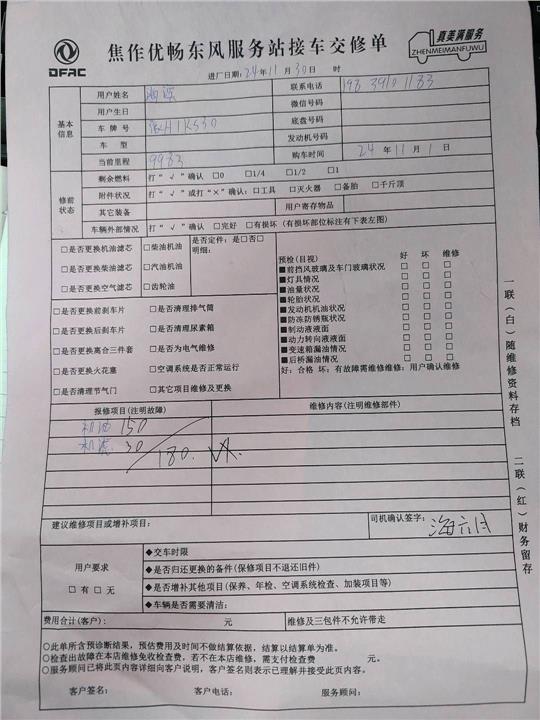 DFAC
焦作优畅东风服务站接车交修单
真美满服务
ZHENMEIMANFUWU
进厂日期：24年11月30日 时
基本信息
用户姓名
联系电话 198 3910 1183
用户生日
微信号码
车牌号
底盘号码
车型
发动机号码
当前里程 9983
购车时间 24年11月1日
修前状态
剩余燃料 打“√”确认 □0 □1/4 □1/2 □1
附件状况 打“√”或打“×”确认：□工具 □灭火器 □备胎 □千斤顶
其它装备
用户寄存物品
车辆外部情况 打“√”确认 □完好 □有损坏（有损坏部位标注有下表左图）
□是否更换机油滤芯 □柴油机油
□是否更换柴油滤芯 □汽油机油
□是否更换空气滤芯 □齿轮油
是否定件：是□否□
明细：
□是否更换前刹车片 □是否清理排气筒
□是否更换后刹车片 □是否清理尿素箱
□是否更换离合三件套 □是否为电气维修
□是否更换火花塞 □空调系统是否正常运行
□是否清理节气门 □其它项目维修及更换
预检(目视) 好 坏 维修
■前挡风玻璃及车门玻璃状况 □ □ □
■灯具情况 □ □ □
■油量状况 □ □ □
■轮胎状况 □ □ □
■发动机机油状况 □ □ □
■防冻防锈瓶状况 □ □ □
■制动液液面 □ □ □
■动力转向液液面 □ □ □
■变速箱漏油情况 □ □ □
■后桥漏油情况 □ □ □
好：合格 坏：有故障需维修维修：用户确认维修
报修项目(注明故障)
维修内容(注明维修部件)
机油 150
机滤 30
180.
建议维修项目或增补项目：
司机确认签字：
用户要求
□有□无
◆交车时限
◆是否归还更换的备件（保修项目不退还旧件）
◆是否增补其他项目（保养、年检、空调系统检查、加装项目等）
◆车辆是否需要清洁：
费用合计(客户)： 元
维修及三包件不允许带走
○此单所含预诊断结果，预估费用及时间不做结算依据，结算以结算单为准。
○检查出故障在本店维修免收检查费，若不在本店维修，需支付检查费 元。
○服务顾问已将此页内容详细向客户说明，客户签名则表示已理解并接受此页内容。
客户签名： 客户电话： 服务顾问：
一联（白）随维修资料存档
二联（红）财务留存